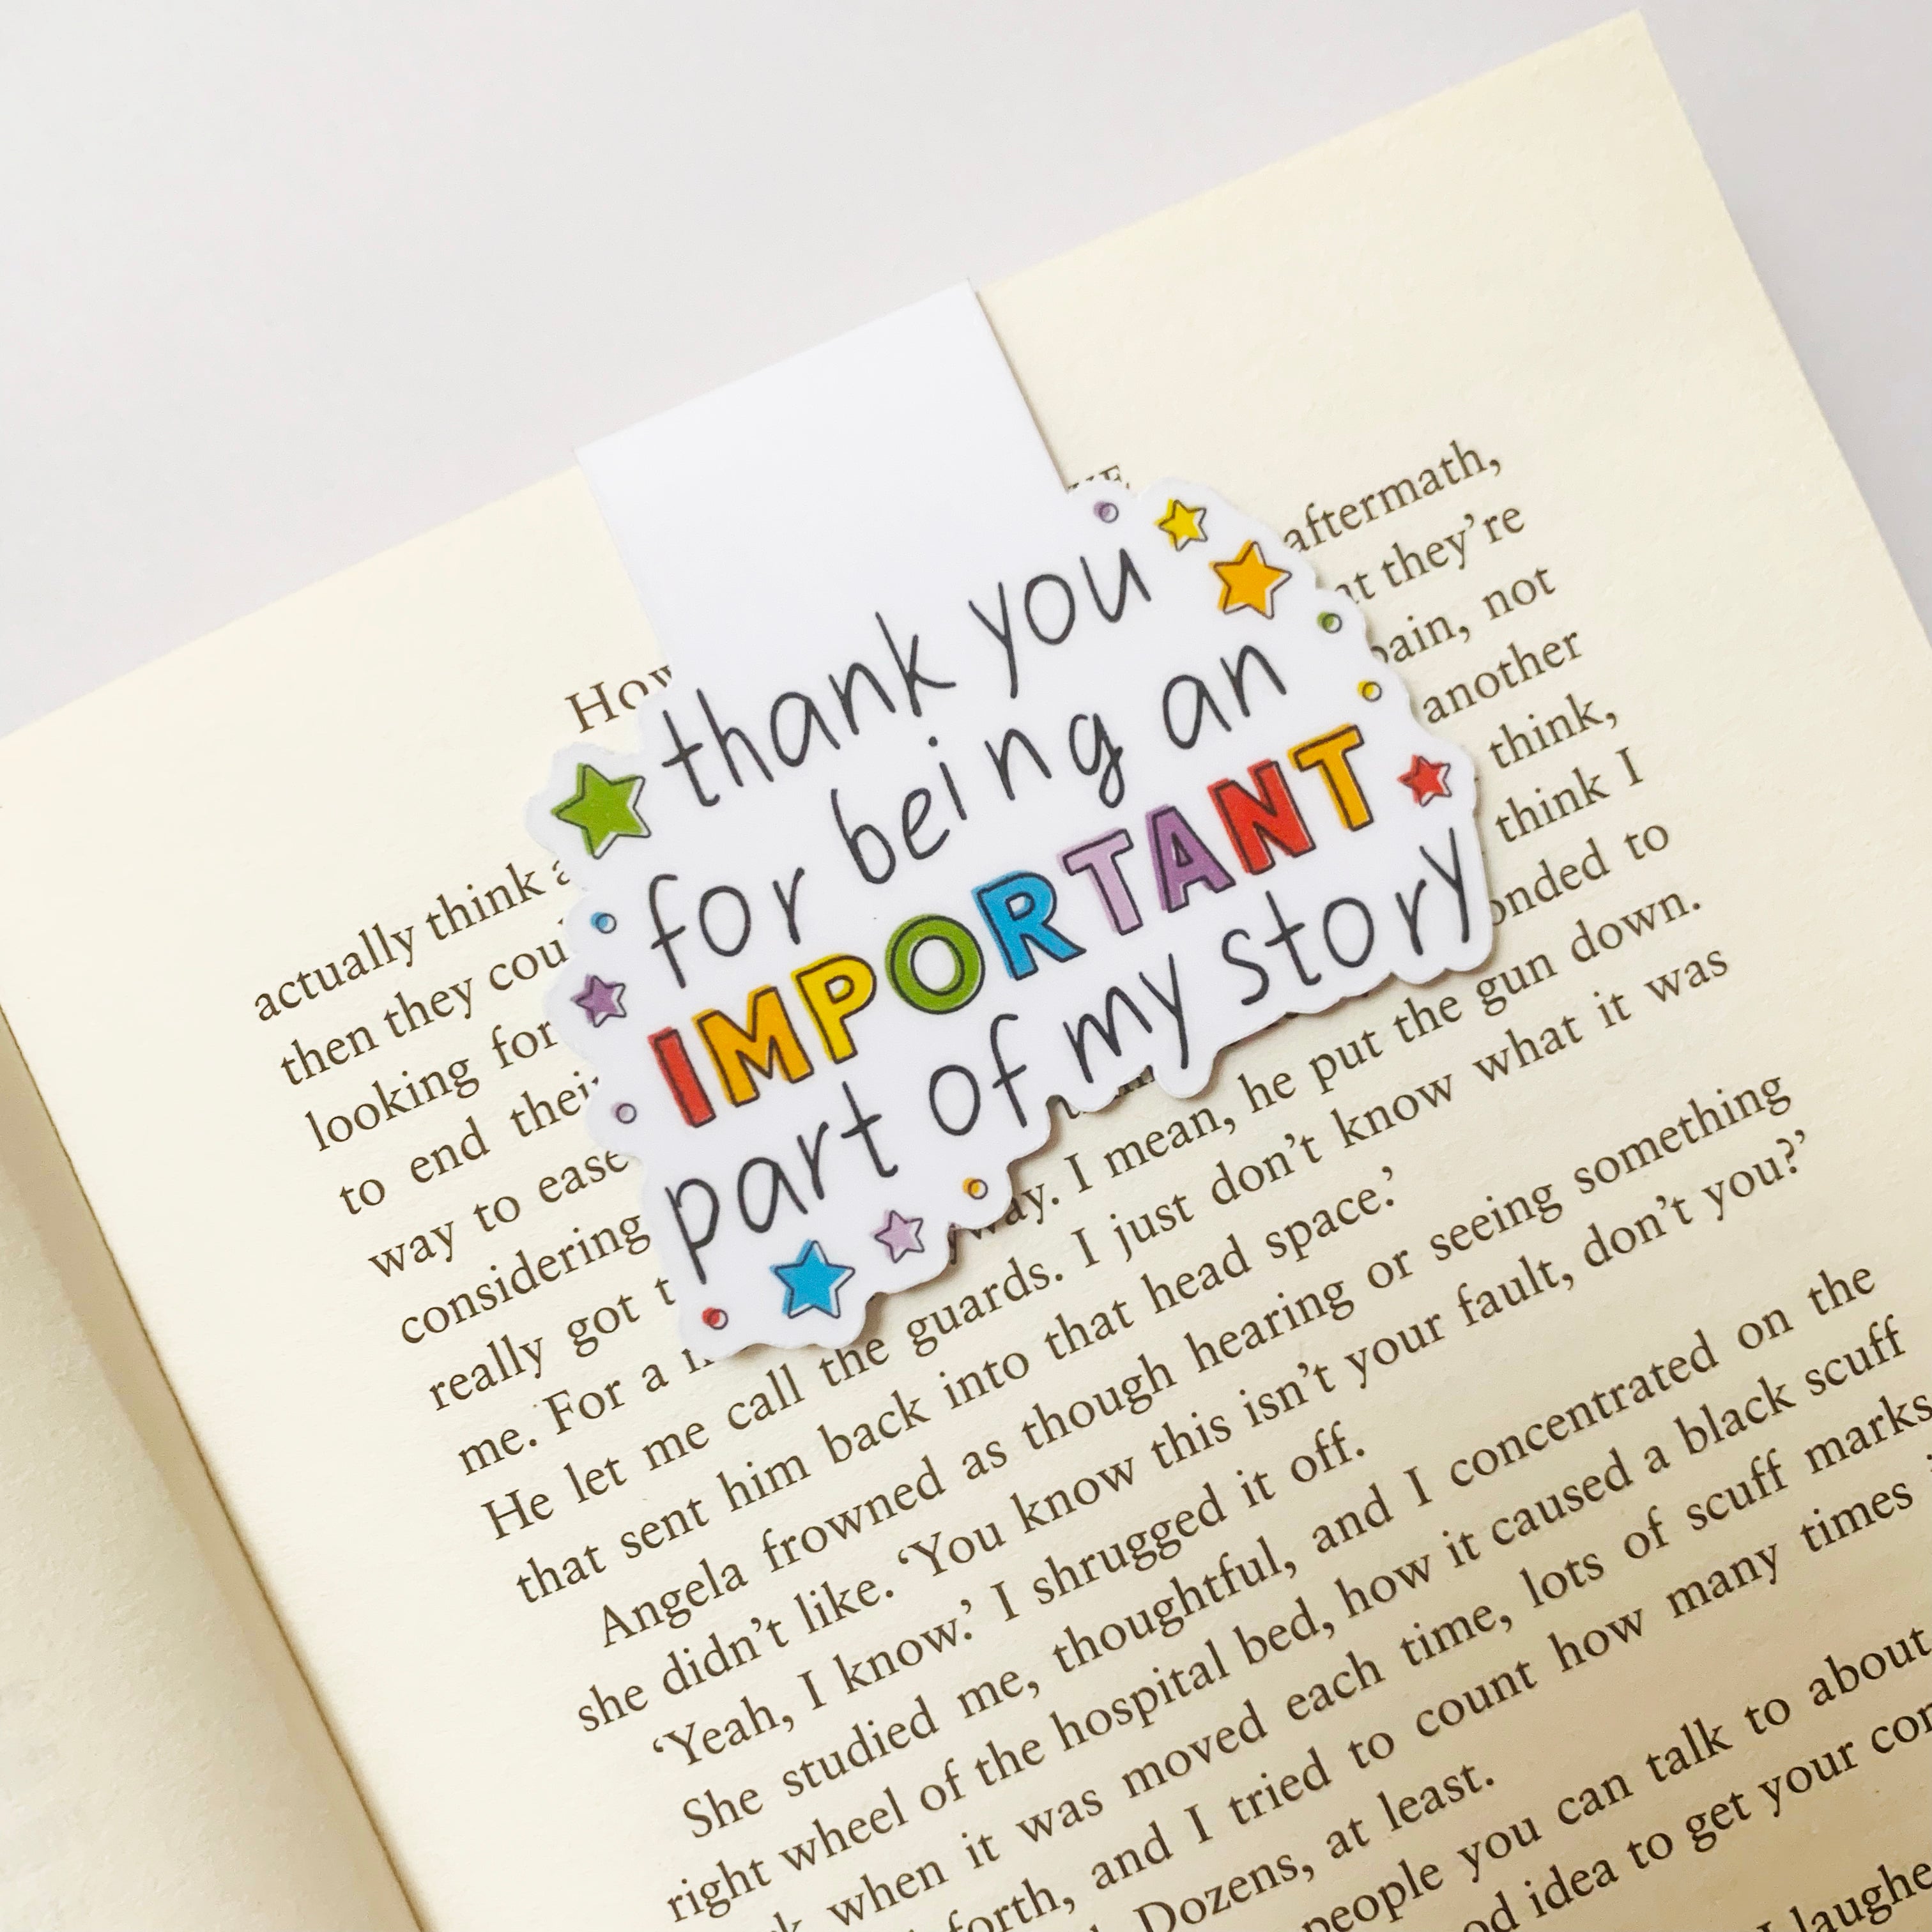 thank you
for being an
IMPORTANT
part of my story
aftermath,
they're
not
actually think
another
then they
think,
looking for
think I
to end
to
way to ease
down.
considering
really got
I mean, he put the gun
me. For a
I just don't know what it was
He let me call the guards.
that sent him back into that head space.'
Angela frowned as though hearing or seeing something
she didn't like. 'You know this isn't your fault, don't you?'
'Yeah, I know.' I shrugged it off.
She studied me, thoughtful, and I concentrated on the
right wheel of the hospital bed, how it caused a black scuff
when it was moved each time, lots of scuff marks
forth, and I tried to count how many times
Dozens, at least.
people you can talk to about
idea to get your